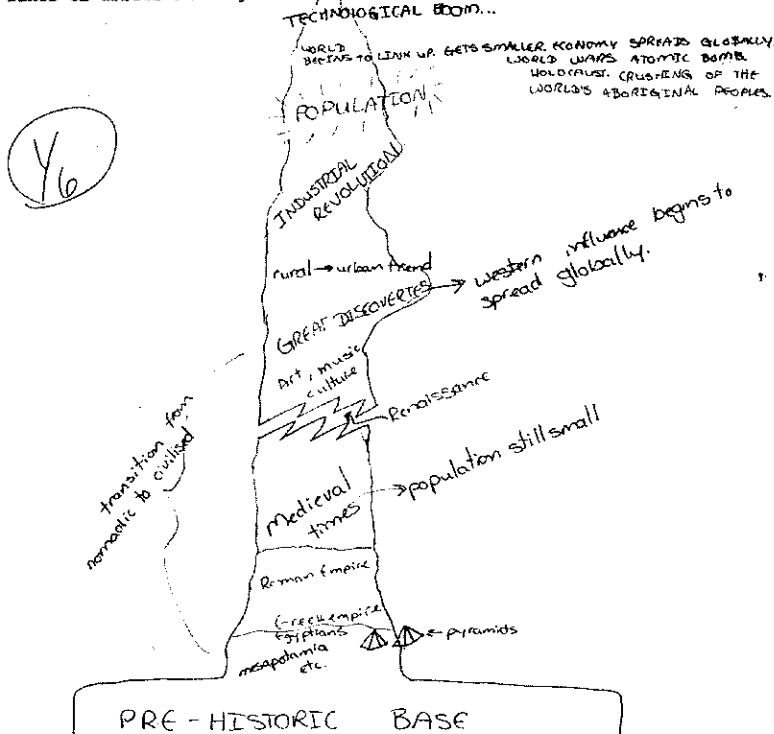 TECHNOLOGICAL BOOM...
WORLD
BEGINS TO LINK UP. GETS SMALLER. ECONOMY SPREADS GLOBALLY
WORLD WARS ATOMIC BOMB
HOLOCAUST. CRUSHING OF THE
WORLD'S ABORIGINAL PEOPLES.
POPULATION
Y6
INDUSTRIAL
REVOLUTION
rural → urban trend
GREAT DISCOVERIES → western influence begins to
spread globally.
Art, music
culture
Renaissance
transition from
nomadic to civilised
Medieval
times → population still small
Roman Empire
Greek empire
Egyptians
mesapotamia
etc.
← pyramids
PRE-HISTORIC BASE